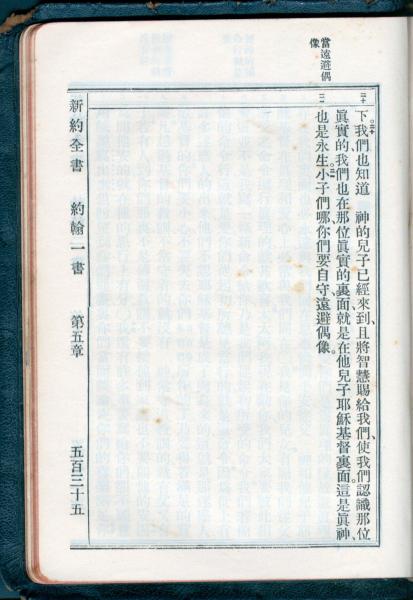 當遠避偶
像
二十
二一
下。二十我們也知道 神的兒子已經來到、且將智慧賜給我們、使我們認識那位
眞實的我們也在那位眞實的裏面、就是在他兒子耶穌基督裏面。這是眞神、
也是永生。二一小子們哪、你們要自守、遠避偶像。
新約全書 約翰一書 第五章 五百三十五